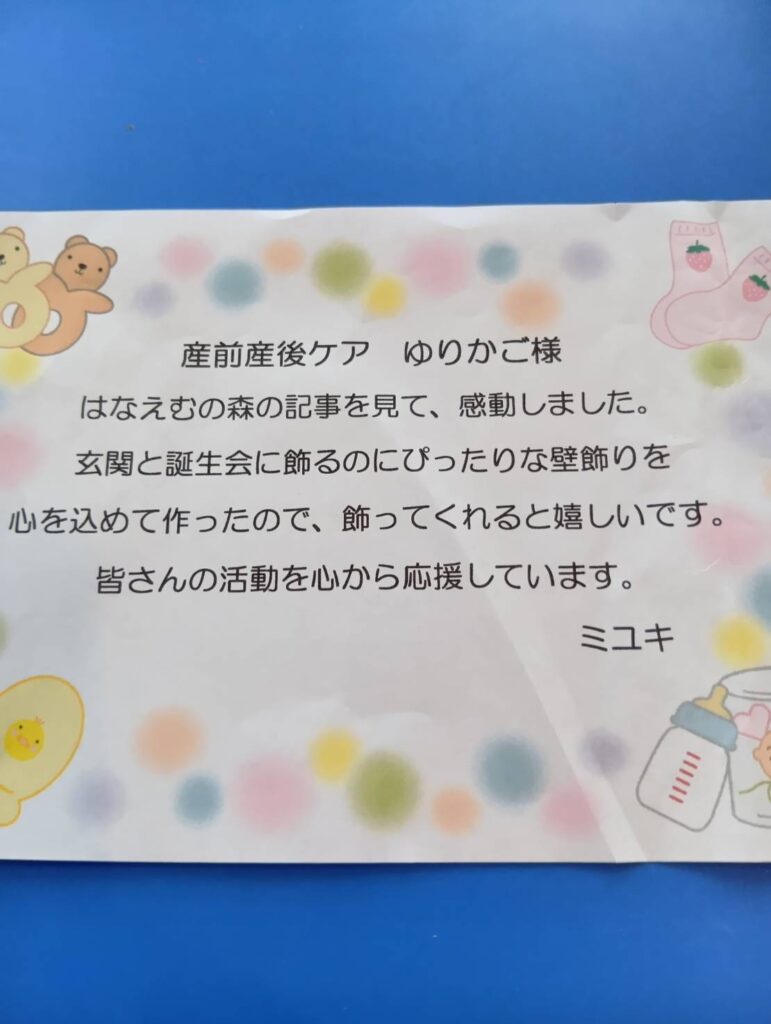 産前産後ケア　ゆりかご様
はなえむの森の記事を見て、感動しました。
玄関と誕生会に飾るのにぴったりな壁飾りを
心を込めて作ったので、飾ってくれると嬉しいです。
皆さんの活動を心から応援しています。
ミユキ